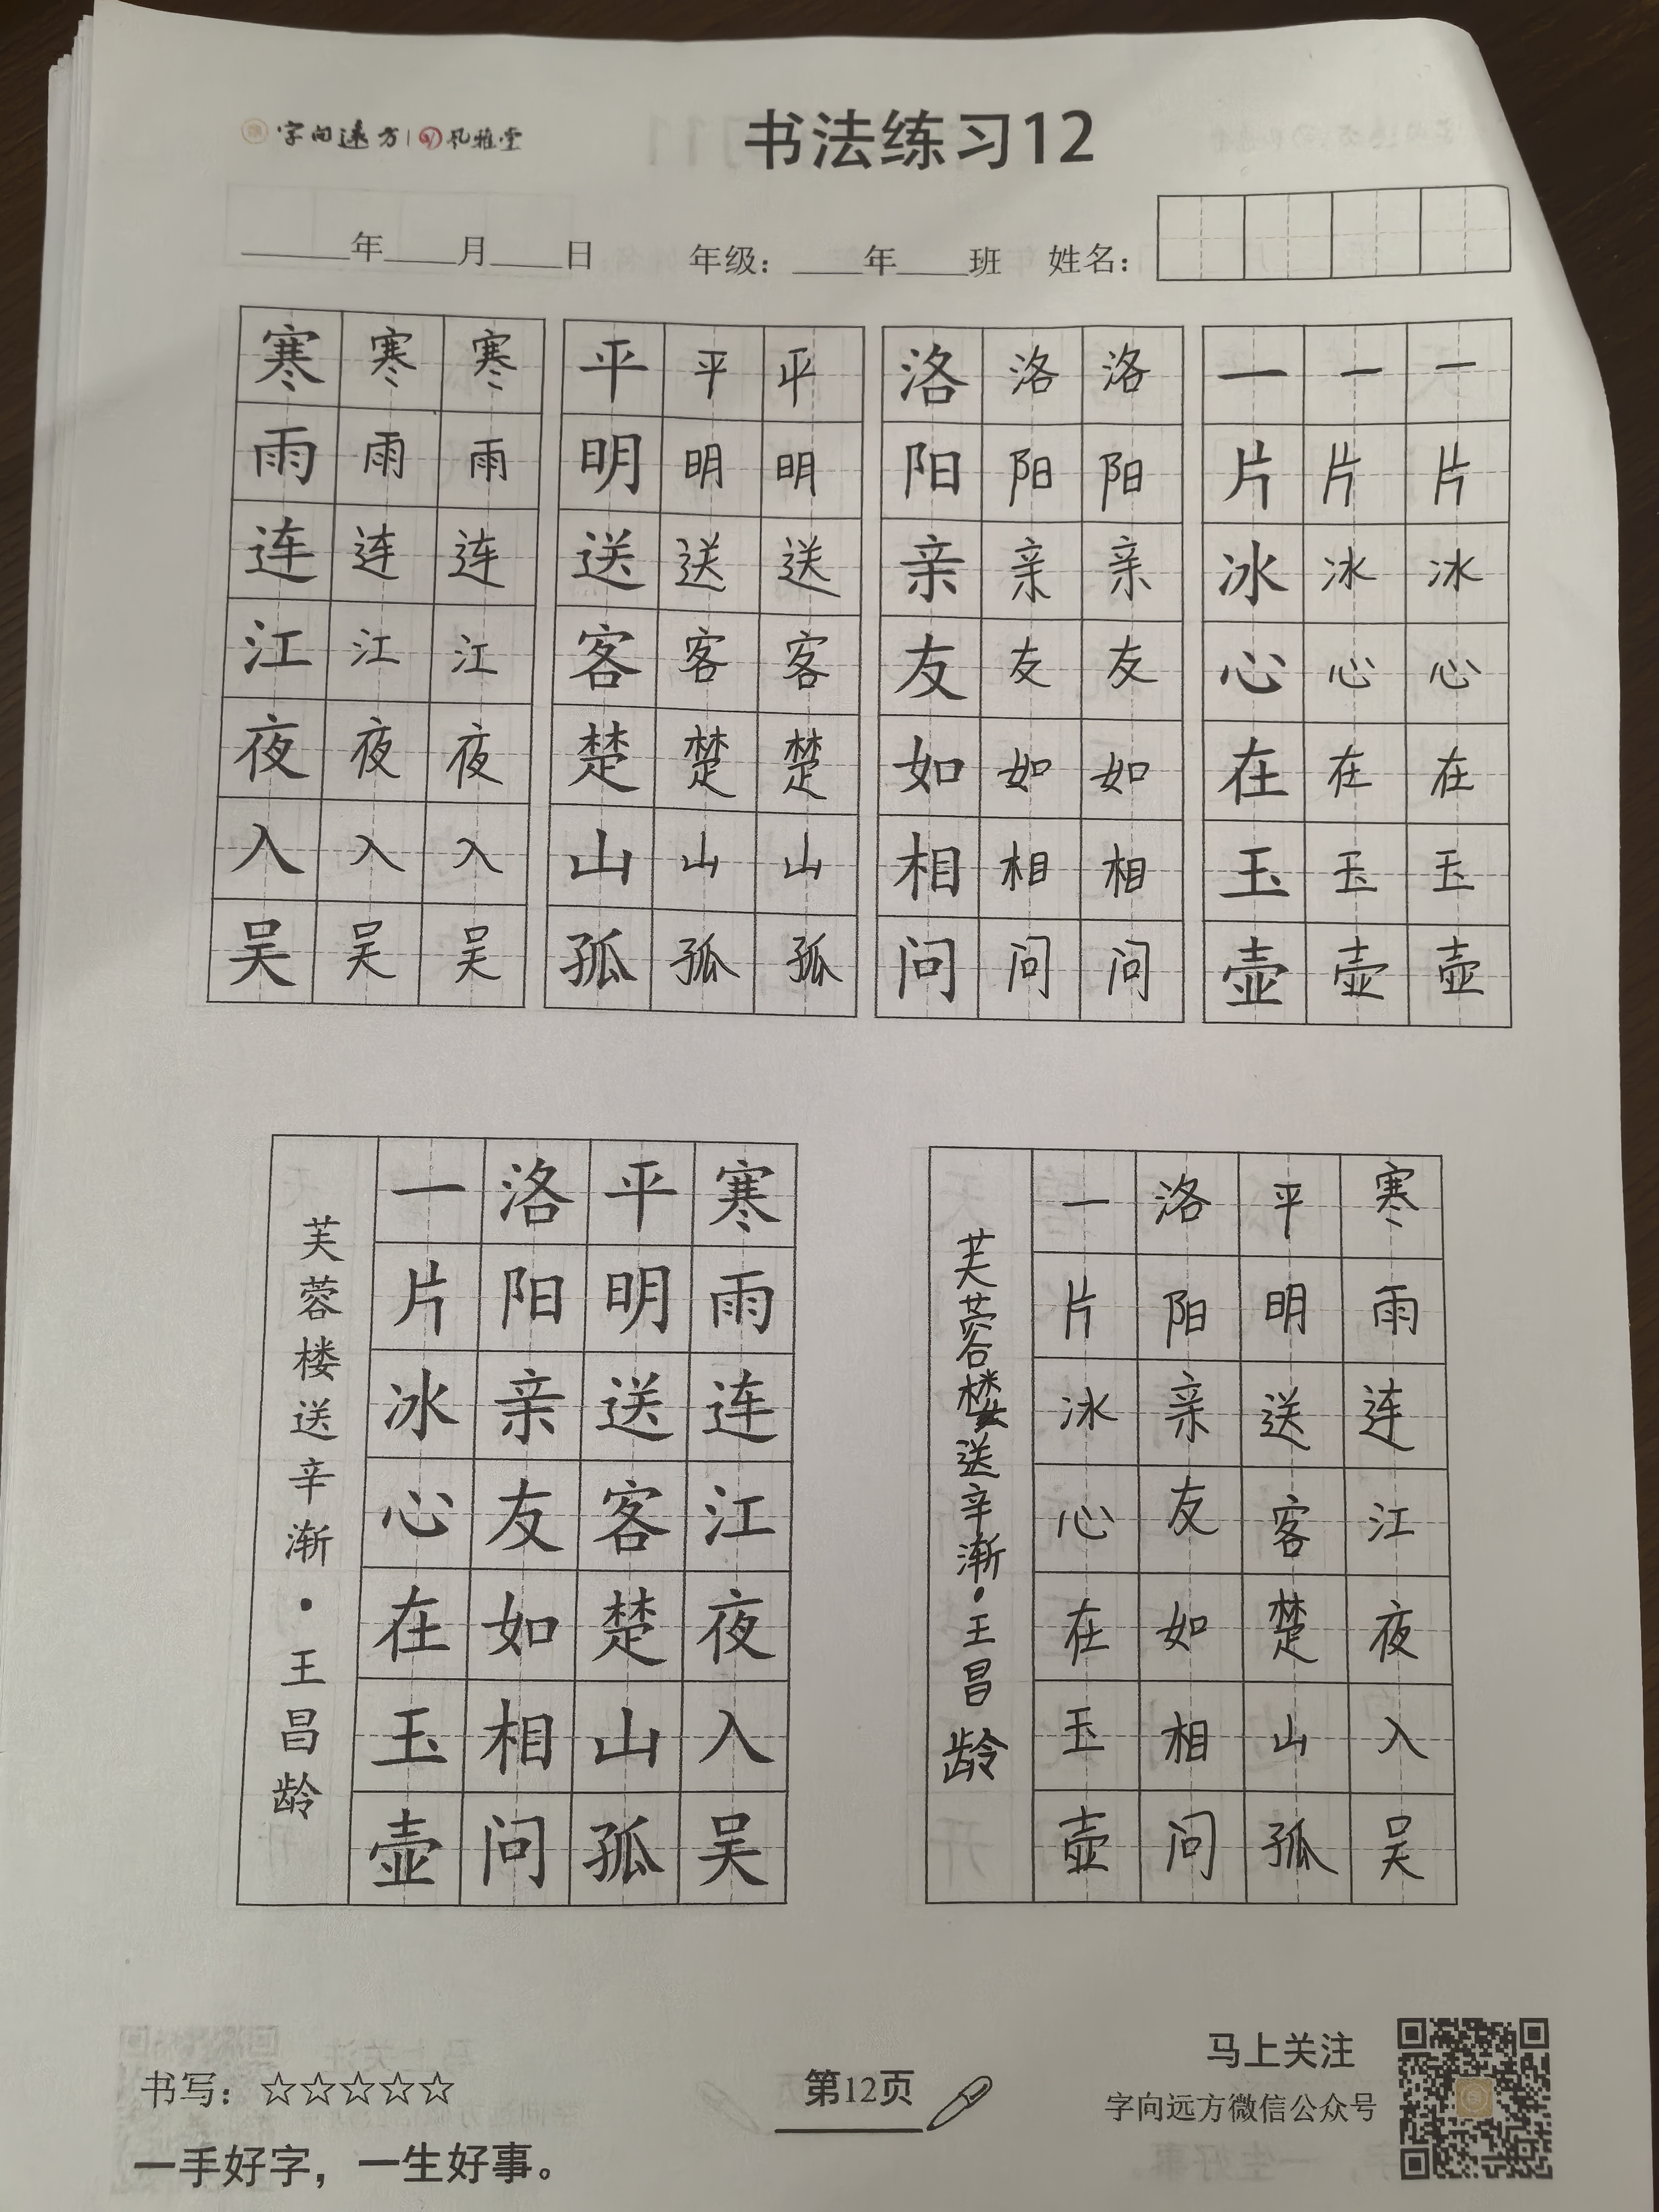 字向远方 | 孔雅堂
书法练习12
年 月 日 年级： 年 班 姓名：
寒寒寒 平平平 洛洛洛 一一一
雨雨雨 明明明 阳阳阳 片片片
连连连 送送送 亲亲亲 冰冰冰
江江江 客客客 友友友 心心心
夜夜夜 楚楚楚 如如如 在在在
入入入 山山山 相相相 玉玉玉
吴吴吴 孤孤孤 问问问 壶壶壶
寒雨连江夜入吴
平明送客楚山孤
洛阳亲友如相问
一片冰心在玉壶
芙蓉楼送辛渐·王昌龄
寒雨连江夜入吴
平明送客楚山孤
洛阳亲友如相问
一片冰心在玉壶
芙蓉楼送辛渐·王昌龄
书写：☆☆☆☆☆
一手好字，一生好事。
第12页
马上关注
字向远方微信公众号